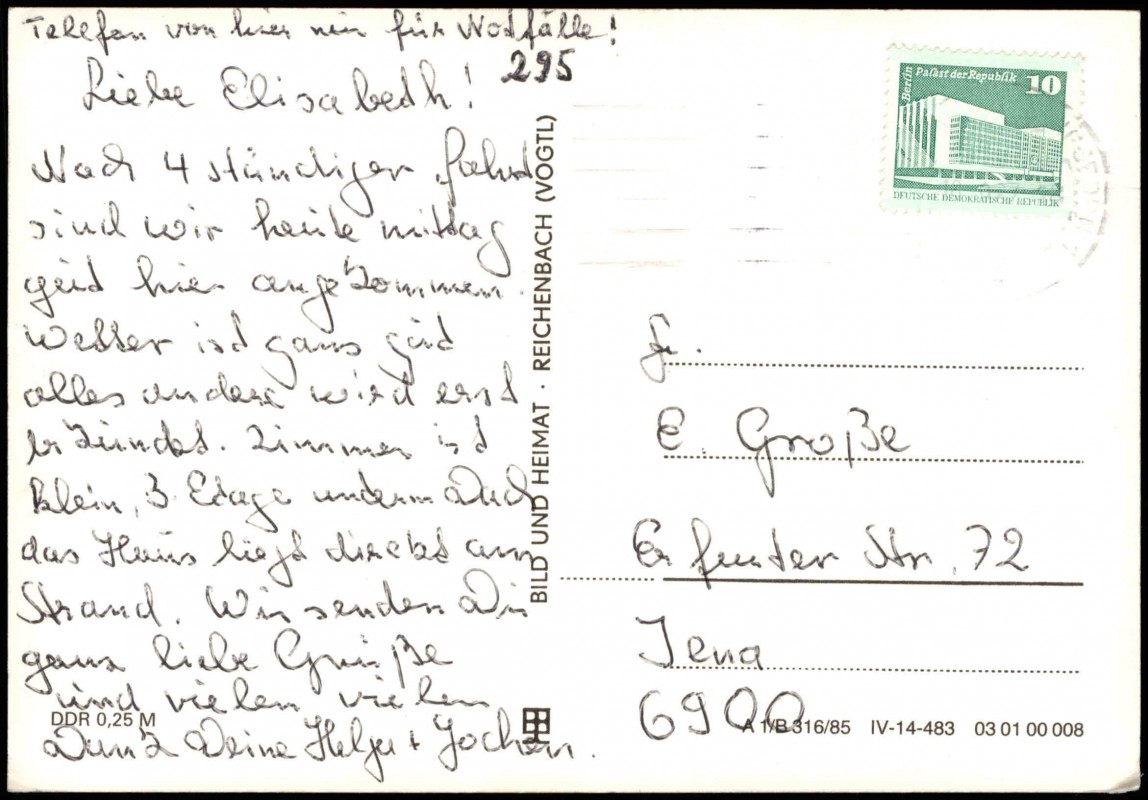 Telefon von hier nur für Notfälle!
295
Liebe Elisabeth!
Nach 4 stündiger Fahrt
sind wir heute mittag
gut hier angekommen.
Wetter ist ganz gut
alles andere wird erst
erkundet. Zimmer ist
klein, 3. Etage unterm Dach
das Haus liegt direkt am
Strand. Wir senden Dir
ganz liebe Grüße
und vielen vielen
Dank Deine Helga + Jochen.
DDR 0,25 M
BILD UND HEIMAT · REICHENBACH (VOGTL)
Berlin
Palast der Republik 10
DEUTSCHE DEMOKRATISCHE REPUBLIK
Fr.
E. Große
Erfurter Str. 72
Jena
6900
A 1/B 316/85 IV-14-483 03 01 00 008